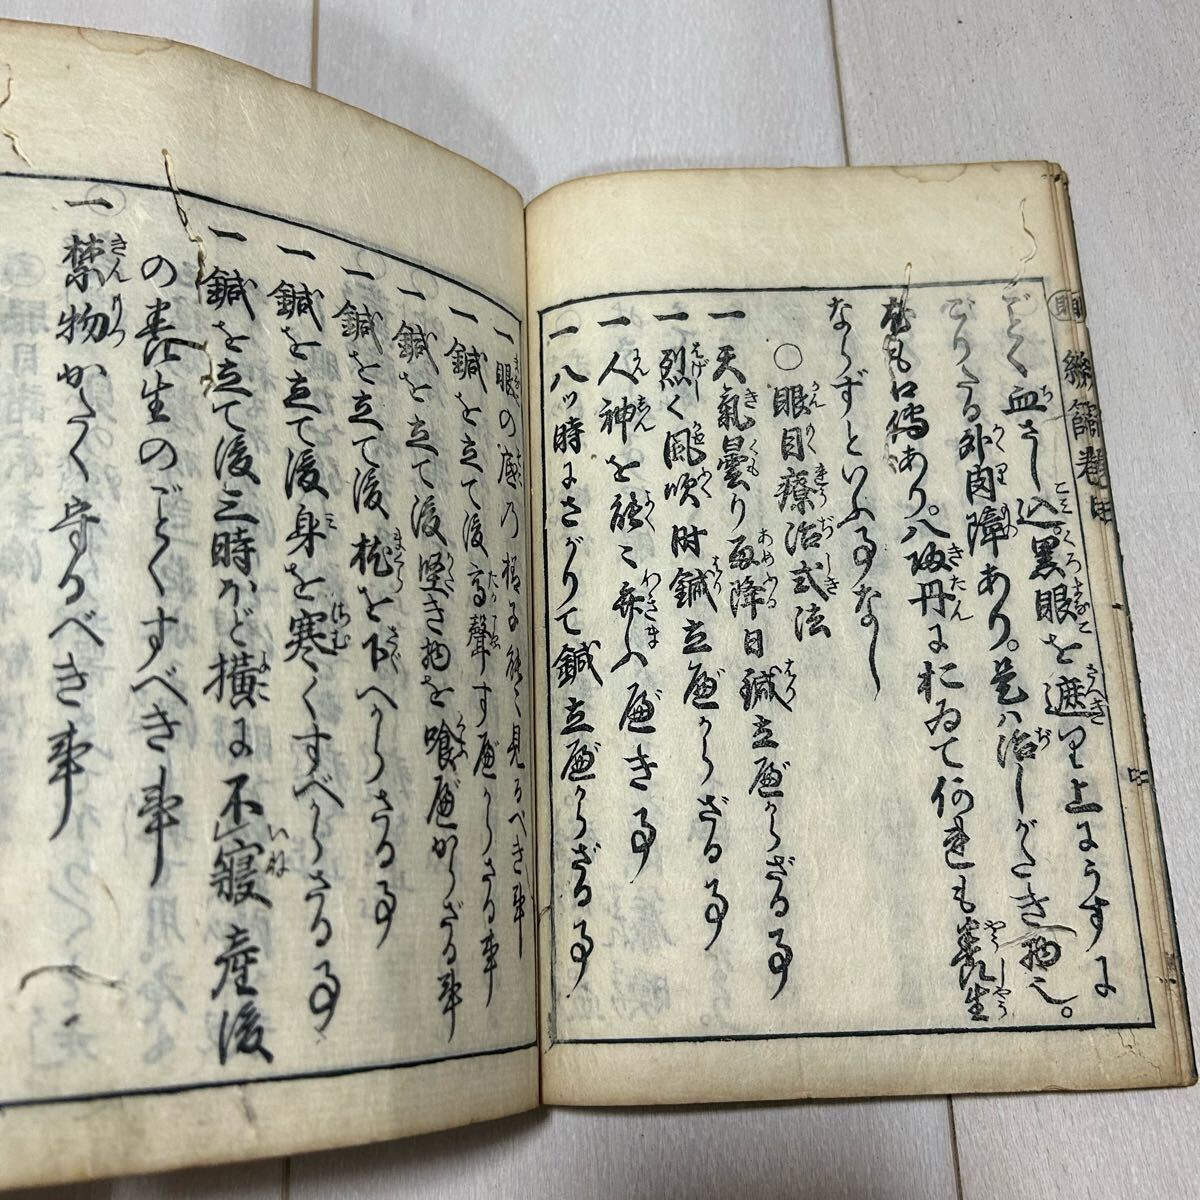 ごとく血さし込黒眼を遮り上にうすに
びりたる外肉障あり。是ハ治しがたき物也。
尤も口傳あり。八味丹に於ゐて何連も養生
ならずといふ事なし
○眼目療治式法
一天氣曇り雨降日鍼立べからざる事
一烈く風吹時鍼立べからざる事
一人神を能々弁へべき事
一八ツ時にさがりて鍼立べからざる事
一眼の底乃様子能く見るべき事
一鍼を立て後高聲すべからさる事
一鍼を立て後堅き物を喰べからざる事
一鍼を立て後枕を下へからさる事
一鍼を立て後身を寒くすべからさる事
一鍼を立て後三時かど横に不寢産後
の養生のごとくすべき事
一禁物かたく守るべき事